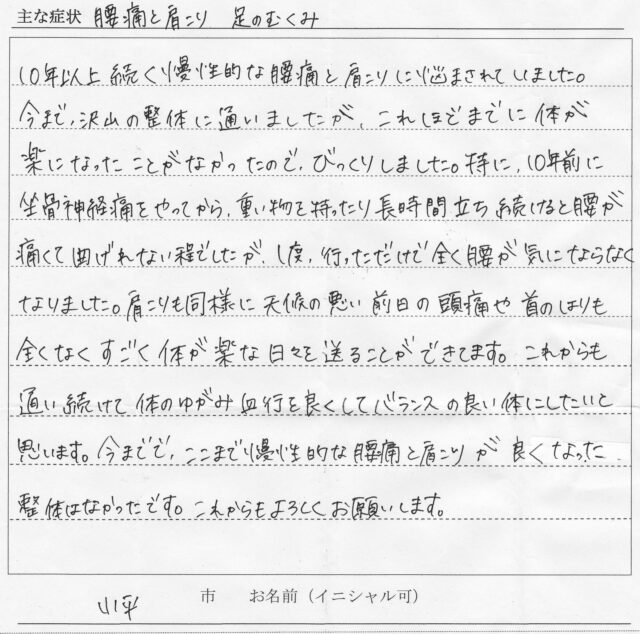 主な症状 腰痛と肩こり 足のむくみ
10年以上続く慢性的な腰痛と肩こりに悩まされていました。
今まで、沢山の整体に通いましたが、これほどまでに体が
楽になったことがなかったので、びっくりしました。特に、10年前に
坐骨神経痛をやってから、重い物を持ったり長時間立ち続けると腰が
痛くて曲げれない程でしたが、1度、行っただけで全く腰が気にならなく
なりました。肩こりも同様に天候の悪い前日の頭痛や首のはりも
全くなくすごく体が楽な日々を送ることができてます。これからも
通い続けて体のゆがみ血行を良くしてバランスの良い体にしたいと
思います。今までで、ここまで慢性的な腰痛と肩こりが良くなった
整体はなかったです。これからもよろしくお願いします。
小平 市 お名前（イニシャル可）